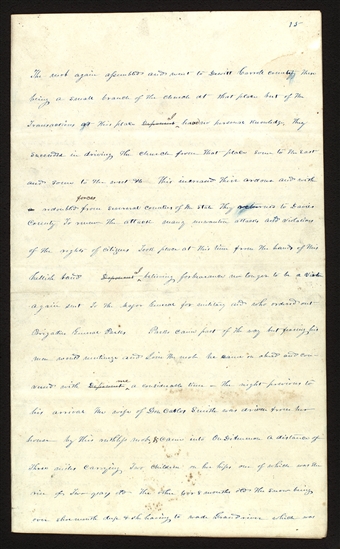 15
The mob again assembled and went to Dewitt Carroll county there
being a small branch of the church at that place but of the
transactions at this place Deponent I have no personal knowledge, they
succeeded in driving the church from that place some to the east
and some to the west &c. This increased their ardour and with
forces
redoubled from several counties of the state they returned to Davies
County To renew the attack many wanton attacks and violations
of the rights of citizens took place at this time from the hands of this
hellish band Deponent I believing forbearance no longer to be a
again sent to the Major General for military aid who ordered out
Brigadier General Parks. Parks came part of the way but fearing his
men would mutinize and join the mob he came on ahead and con-
versed with Deponent me a considerable time. The night previous to
his arrival the wife of Don Carlos Smith was driven from her
house by this ruthless mob & came into On Diahman a distance of
three miles carrying Two children on her hips one of which was
Two years old the other 6 & 8 months old the snow being
over shoemouth deep & she having to wade Grand river which was